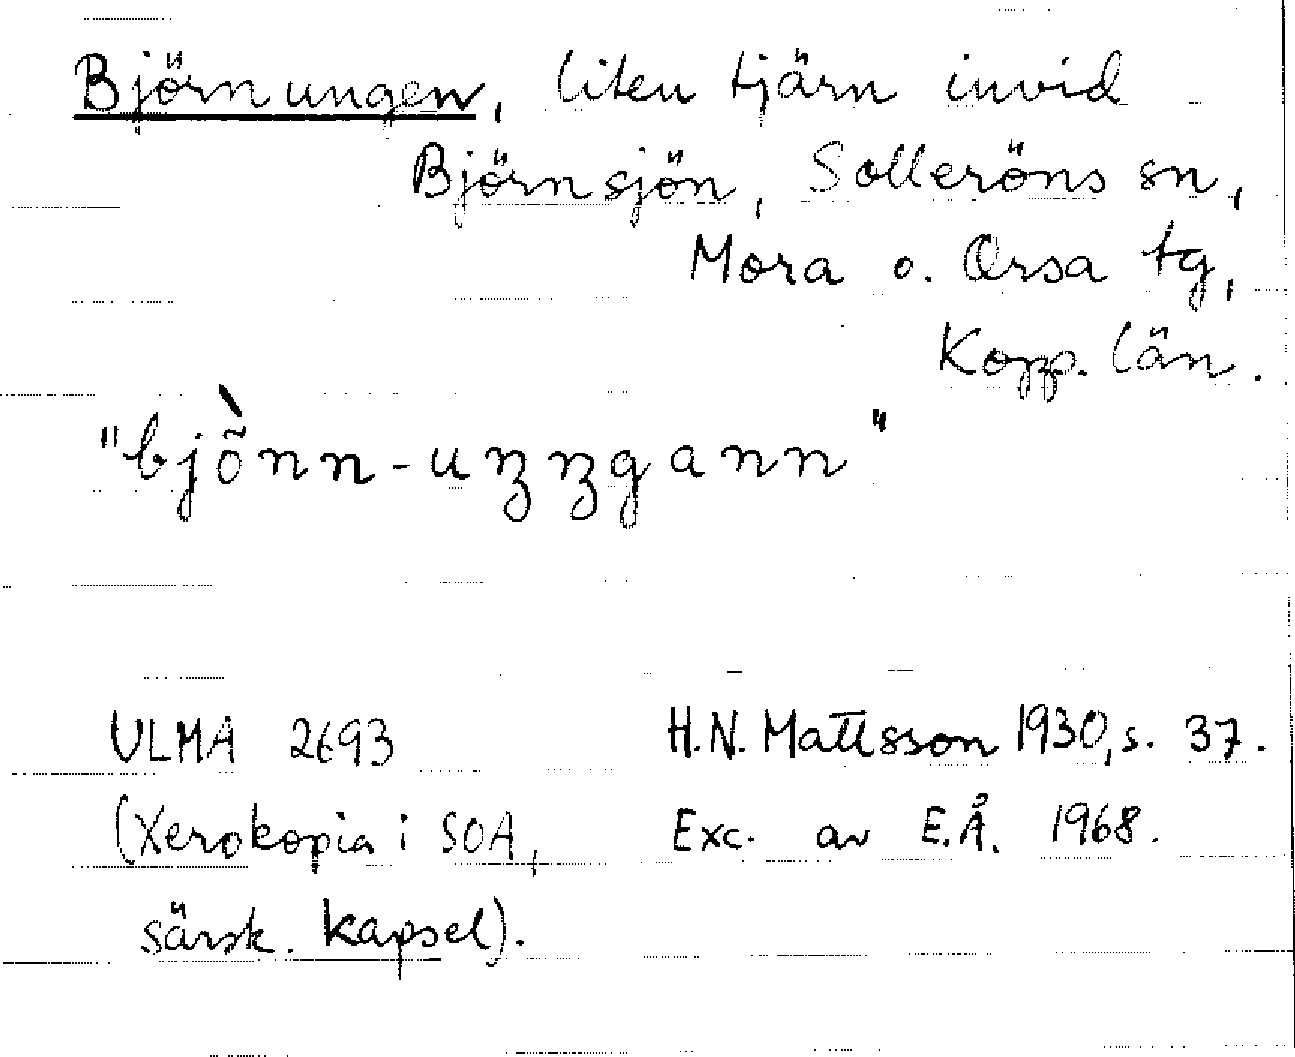 Björnungen, liten tjärn invid
Björnsjön, Solleröns sn,
Mora o. Orsa tg,
Kopp. län.
"bjȭ̀nn-uŋŋgann"
ULMA 2693 H.N. Mattsson 1930, s. 37.
(Xerokopia i SOA, Exc. av E.Å. 1968.
särsk. kapsel).